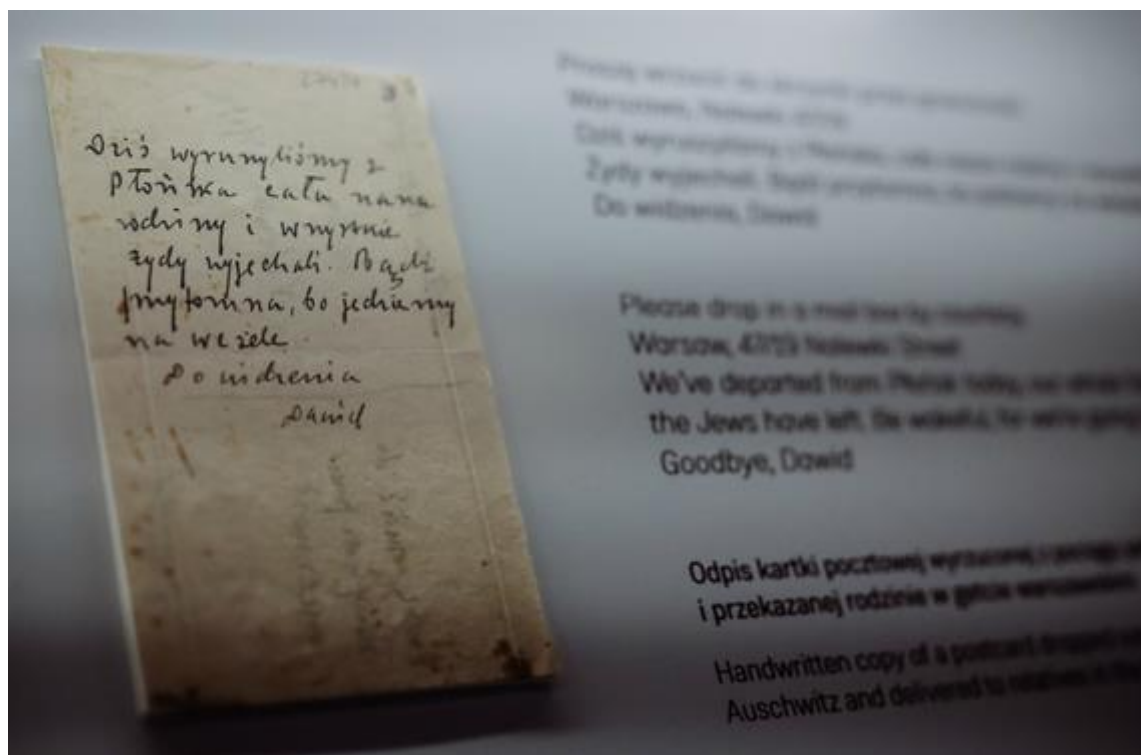 Dziś wyruszyliśmy z
Płońska cała nasza
rodziny i wszystkie
żydy wyjechali. Bądź
przytomna, bo jedziemy
na wesele.
Do widzenia
Dawid
Proszę wrzucić do skrzynki
Warszawa, Nalewki 47/19
Dziś wyruszyliśmy z Płońska, cała nasza
Żydy wyjechali. Bądź przytomna, bo jedziemy na
Do widzenia, Dawid
Please drop in a mail box
Warsaw, 47/19 Nalewki Street
We've departed from Płońsk today, our whole
the Jews have left. Be wakeful, for we're going
Goodbye, Dawid
Odpis kartki pocztowej wyrzuconej z pociągu
i przekazanej rodzinie w getcie warszawskim
Handwritten copy of a postcard dropped
Auschwitz and delivered to relatives in the